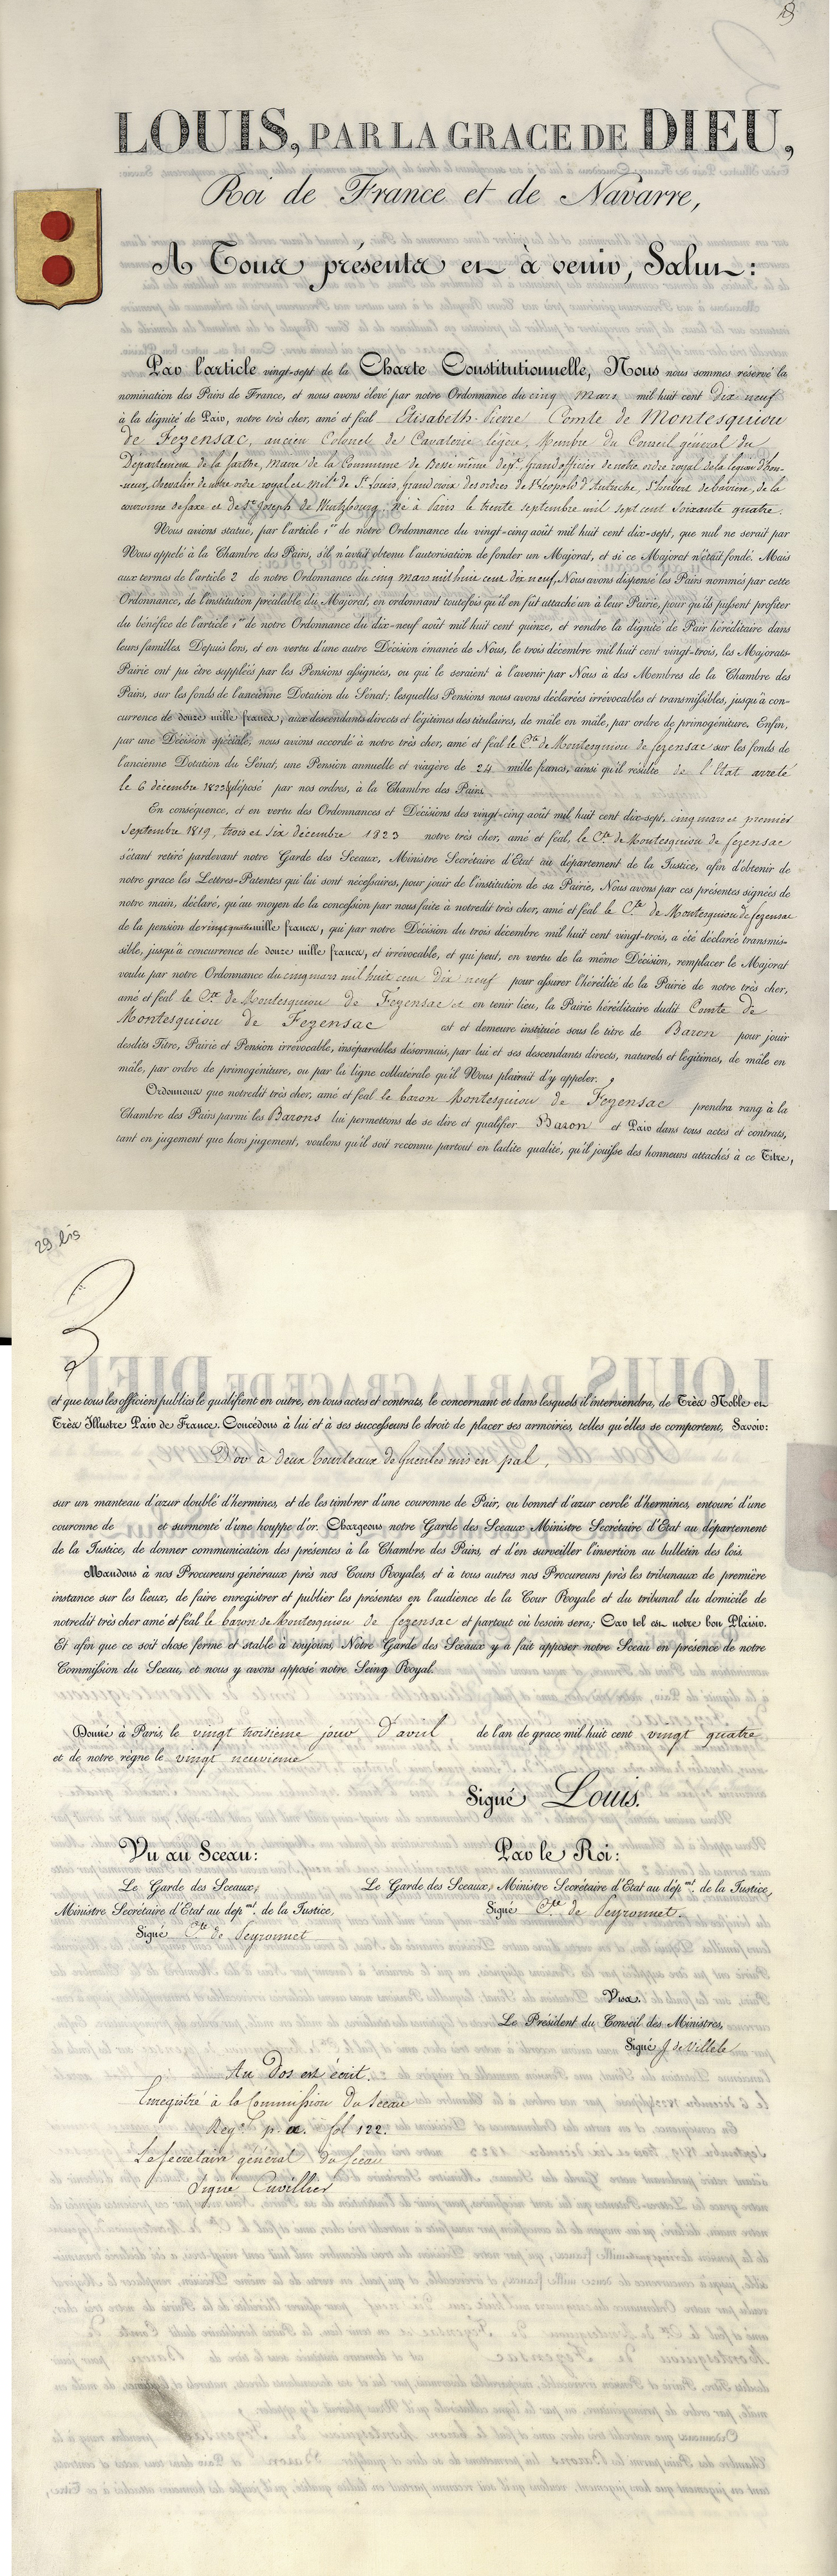 LOUIS, PAR LA GRACE DE DIEU,
Roi de France et de Navarre,
A Tous présents et à venir, Salut:
Par l'article vingt-sept de la Charte Constitutionnelle, Nous nous sommes réservé la
nomination des Pairs de France, et nous avons élevé par notre Ordonnance du cinq Mars mil huit cent Dix neuf
à la dignité de Pair, notre très cher, amé et féal Elisabeth-Pierre Comte de Montesquiou
de Fezensac, ancien Colonel de Cavalerie légère, Membre du Conseil général du
Département de la Sarthe, Maire de la Commune de Bessé même dépt, Grand officier de notre ordre royal de la légion d'hon-
-neur, chevalier de notre ordre royal et milre de St Louis, grand croix des ordres de St Léopold d'Autriche, St hubert de bavière, de la
couronne de saxe et de St Joseph de Wurtzbourg, né à Paris le trente septembre mil sept cent Soixante quatre.
Nous avions statué, par l'article 1er de notre Ordonnance du vingt-cinq août mil huit cent dix-sept, que nul ne serait par
Nous appelé à la Chambre des Pairs, s'il n'avait obtenu l'autorisation de fonder un Majorat, et si ce Majorat n'était fondé. Mais
aux termes de l'article 2 de notre Ordonnance du cinq mars mil huit cent dix neuf, Nous avons dispensé les Pairs nommés par cette
Ordonnance, de l'institution préalable du Majorat, en ordonnant toutefois qu'il en fût attaché un à leur Pairie, pour qu'ils pussent profiter
du bénéfice de l'article 1er de notre Ordonnance du dix-neuf août mil huit cent quinze, et rendre la dignité de Pair héréditaire dans
leurs familles. Depuis lors, et en vertu d'une autre Décision émanée de Nous, le trois décembre mil huit cent vingt-trois, les Majorats-
Pairie ont pu être suppléés par les Pensions assignées, ou qui le seraient à l'avenir par Nous à des Membres de la Chambre des
Pairs, sur les fonds de l'ancienne Dotation du Sénat; lesquelles Pensions nous avons déclarées irrévocables et transmissibles, jusqu'à con-
currence de douze mille francs, aux descendants directs et légitimes des titulaires, de mâle en mâle, par ordre de primogéniture. Enfin,
par une Décision spéciale, nous avions accordé à notre très cher, amé et féal le Cte de Montesquiou de fezensac sur les fonds de
l'ancienne Dotation du Sénat, une Pension annuelle et viagère de 24 mille francs, ainsi qu'il résulte de l'Etat arrêté
le 6 décembre 1823, déposé par nos ordres, à la Chambre des Pairs.
En conséquence, et en vertu des Ordonnances et Décisions des vingt-cinq août mil huit cent dix-sept, cinq mars et premier
Septembre 1819, trois et six décembre 1823 notre très cher, amé et féal, le Cte de Montesquiou de fezensac
s'étant retiré pardevant notre Garde des Sceaux, Ministre Secrétaire d'Etat au département de la Justice, afin d'obtenir de
notre grace les Lettres-Patentes qui lui sont nécessaires, pour jouir de l'institution de sa Pairie, Nous avons par ces présentes signées de
notre main, déclaré, qu'au moyen de la concession par nous faite à notredit très cher, amé et féal le Cte de Montesquiou de fezensac
de la pension de vingt quatre mille francs, qui par notre Décision du trois décembre mil huit cent vingt-trois, a été déclarée transmis-
sible, jusqu'à concurrence de douze mille francs, et irrévocable, et qui peut, en vertu de la même Décision, remplacer le Majorat
voulu par notre Ordonnance du cinq mars mil huit cent dix neuf pour assurer l'hérédité de la Pairie de notre très cher,
amé et féal le Cte de Montesquiou de Fezensac et en tenir lieu, la Pairie héréditaire dudit Comte de
Montesquiou de Fezensac est et demeure instituée sous le titre de Baron pour jouir
desdits Titre, Pairie et Pension irrévocable, inséparables désormais, par lui et ses descendants directs, naturels et légitimes, de mâle en
mâle, par ordre de primogéniture, ou par la ligne collatérale qu'il Nous plairait d'y appeler.
Ordonnons que notredit très cher, amé et féal le baron Montesquiou de Fezensac prendra rang à la
Chambre des Pairs parmi les Barons lui permettons de se dire et qualifier Baron et Pair dans tous actes et contrats,
tant en jugement que hors jugement, voulons qu'il soit reconnu partout en ladite qualité, qu'il jouisse des honneurs attachés à ce Titre,
29 bis
et que tous les officiers publics le qualifient en outre, en tous actes et contrats, le concernant et dans lesquels il interviendra, de Très Noble et
Très Illustre Pair de France. Concédons à lui et à ses successeurs le droit de placer ses armoiries, telles qu'elles se comportent, Savoir:
D'or à deux tourteaux de Gueules mis en pal,
sur un manteau d'azur doublé d'hermines, et de les timbrer d'une couronne de Pair, ou bonnet d'azur cerclé d'hermines, entouré d'une
couronne de et surmonté d'une houppe d'or. Chargeons notre Garde des Sceaux Ministre Secrétaire d'Etat au département
de la Justice, de donner communication des présentes à la Chambre des Pairs, et d'en surveiller l'insertion au bulletin des lois.
Mandons à nos Procureurs généraux près nos Cours Royales, et à tous autres nos Procureurs près les tribunaux de première
instance sur les lieux, de faire enregistrer et publier les présentes en l'audience de la Cour Royale et du tribunal du domicile de
notredit très cher amé et féal le baron de Montesquiou de fezensac et partout où besoin sera; Car tel est notre bon Plaisir.
Et afin que ce soit chose ferme et stable à toujours, Notre Garde des Sceaux y a fait apposer notre Sceau en présence de notre
Commission du Sceau, et nous y avons apposé notre Seing Royal.
Donné à Paris, le vingt troisieme jour D'avril de l'an de grace mil huit cent vingt quatre
et de notre règne le vingt neuvieme
Signé Louis.
Vu au Sceau:
Le Garde des Sceaux,
Ministre Secrétaire d'Etat au dépmt. de la Justice,
Signé Cte de Peyronnet
Par le Roi:
Le Garde des Sceaux, Ministre Secrétaire d'Etat au dépmt. de la Justice,
Signé Cte de Peyronnet.
Visa.
Le Président du Conseil des Ministres,
Signé J de Villele
Au Dos est écrit.
Enregistré à la Commission du Sceau
Regre p. fol 122.
Le Secretaire général du Sceau
Signé Cuvillier